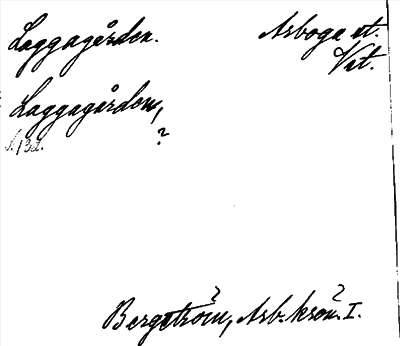 Laggagården. Arboga st.
Vst.
Laggagårdens,
s. 132. ?
Bergström, Arb. krön. I.